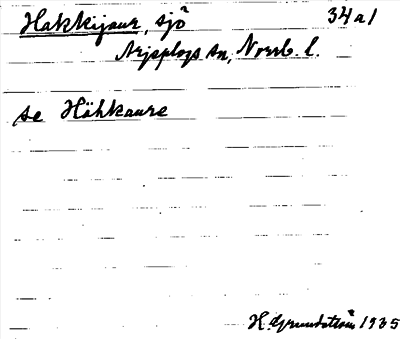 Hakkijaur, sjö 34a1
Arjeplogs sn, Norrb. l.
se Höhkaure
H. Grundström 1935